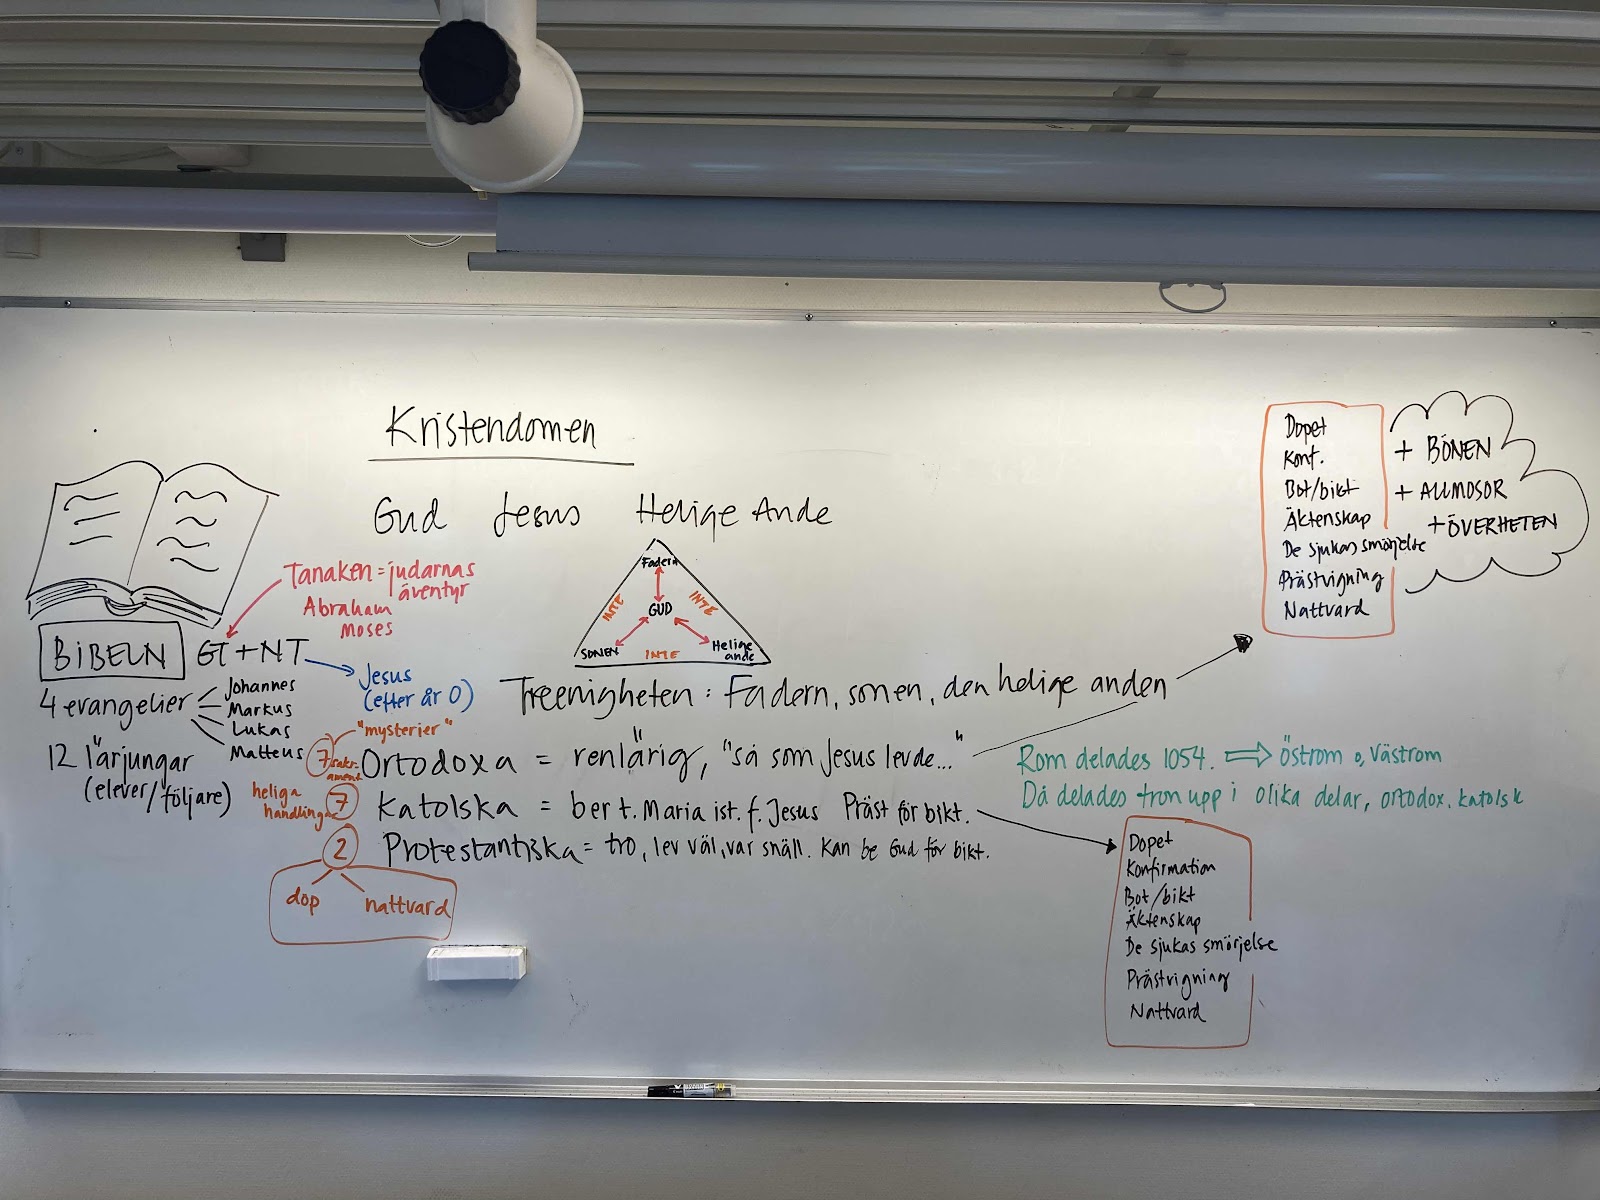 Kristendomen
Gud Jesus Helige Ande
Tanaken = judarnas
äventyr
Abraham
Moses
BIBELN GT + NT
Jesus
(efter år 0)
4 evangelier
Johannes
Markus
Lukas
Matteus
12 lärjungar
(elever/följare)
Fadern
INTE INTE
GUD
SONEN INTE Helige
ande
Treenigheten: Fadern, sonen, den helige anden
"mysterier"
7 sakr-
ament
Ortodoxa = renlärig, "så som Jesus levde..."
heliga
handlingar
7 Katolska = ber t. Maria ist. f. Jesus Präst för bikt.
2 Protestantiska = tro, lev väl, var snäll. Kan be Gud för bikt.
dop nattvard
Rom delades 1054. ⇒ Östrom o, Västrom
Då delades tron upp i olika delar, ortodox. katolsk
Dopet
Konf.
Bot/bikt
Äktenskap
De sjukas smörjelse
Prästvigning
Nattvard
+ BÖNEN
+ ALLMOSOR
+ ÖVERHETEN
Dopet
Konfirmation
Bot/bikt
Äktenskap
De sjukas smörjelse
Prästvigning
Nattvard